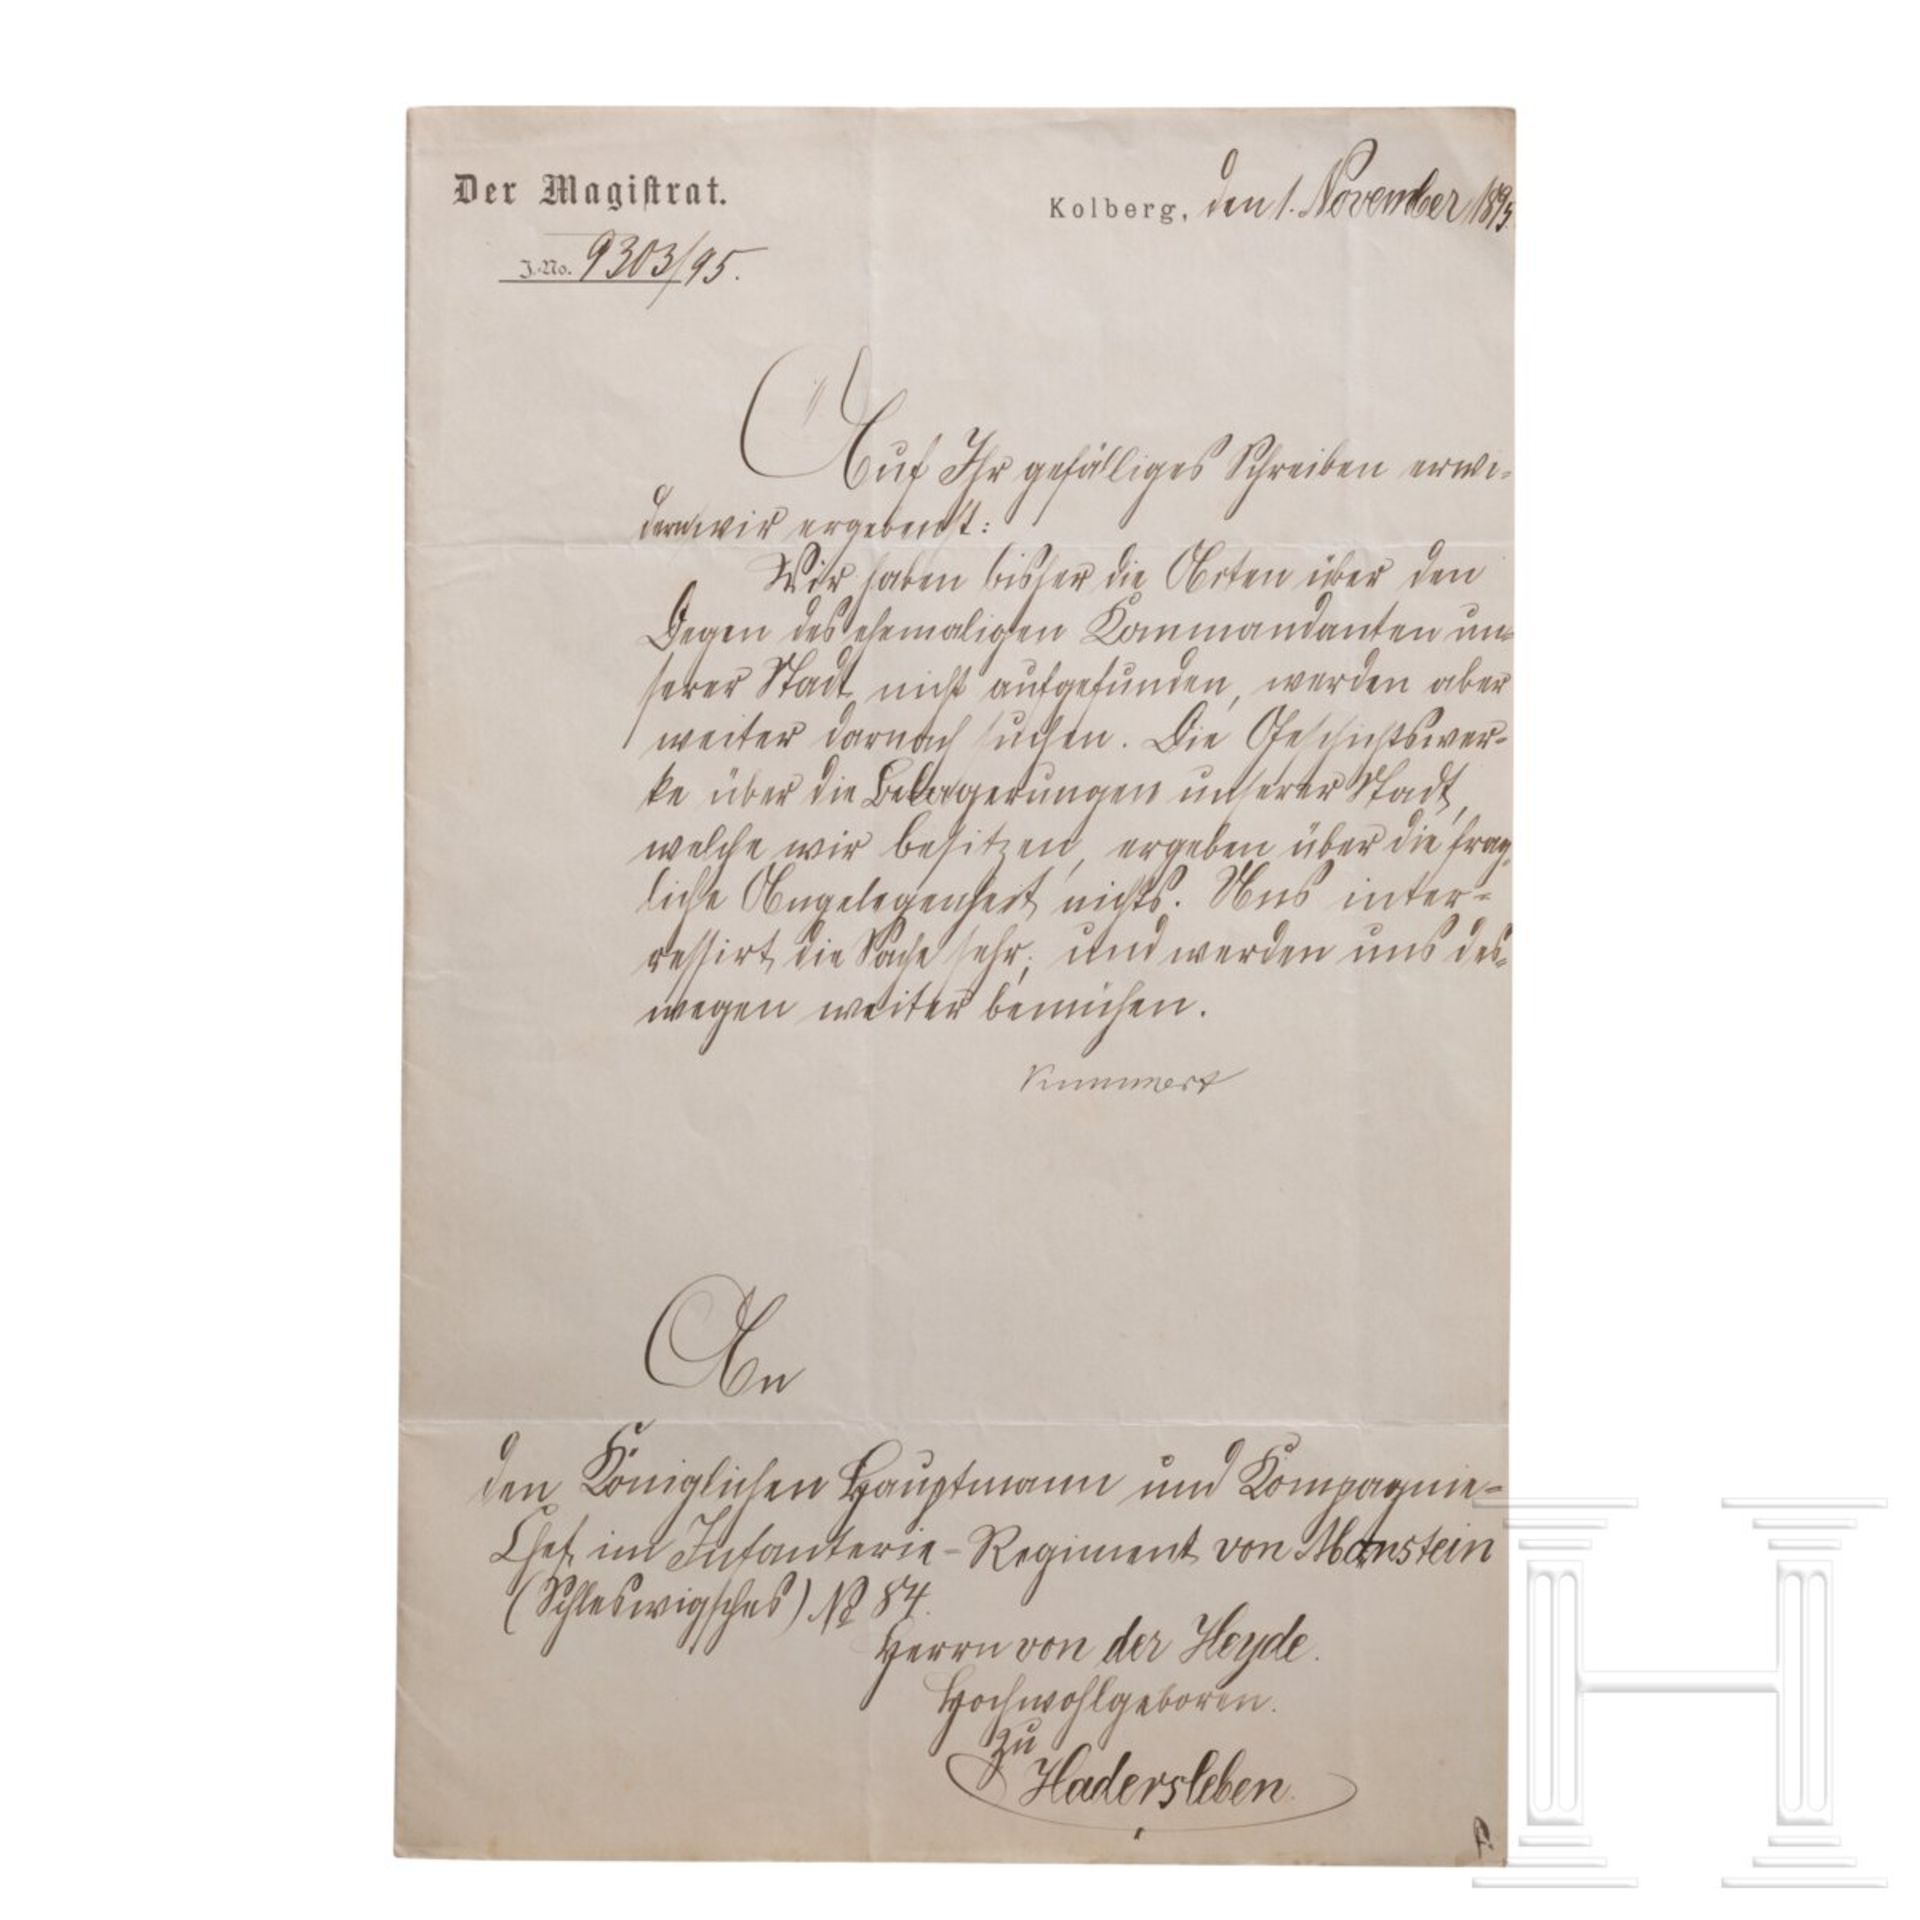 Der Magistrat.
Kolberg, den 1. November 1895.
J.-No. 9303/95.
Auf Ihr gefälliges Schreiben erwi-
dern wir ergebenst:
Wir haben bisher die Akten über den
Degen des ehemaligen Kommandanten un-
serer Stadt nicht aufgefunden, werden aber
weiter darnach suchen. Die Geschichtswer-
ke über die Belagerungen unserer Stadt,
welche wir besitzen, ergeben über die frag-
liche Angelegenheit nichts. Uns inter-
ressirt die Sache sehr, und werden uns des-
wegen weiter bemühen.
Kummert
An
den Königlichen Hauptmann und Kompagnie-
Chef im Infanterie-Regiment von Manstein
(Schleswigsches) No 84.
Herrn von der Heyde.
Hochwohlgeboren.
zu
Hadersleben.